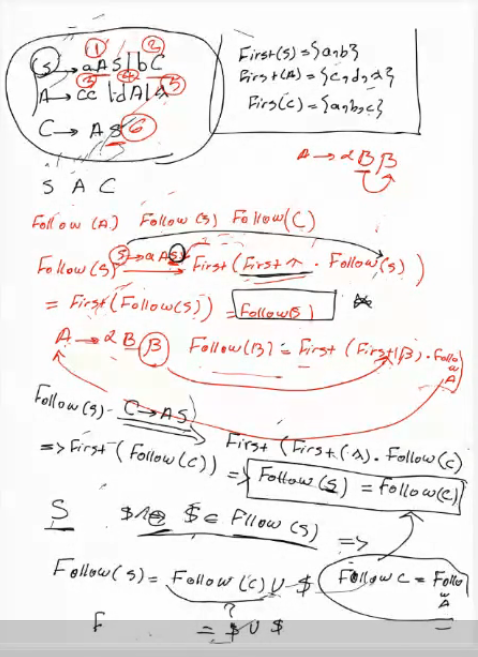 S → aAS | bC
① ②
A → cc | dA | λ
③ ④ ⑤
C → AS ⑥
First(S) = {a,b}
First(A) = {c,d,λ}
First(C) = {a,b,c}
A → αBβ
S A C
Follow(A) Follow(S) Follow(C)
S → aAS
Follow(S) → First(First λ . Follow(S))
= First(Follow(S)) = Follow(S)
A → αBβ Follow(B) = First(First(β). Follow A)
Follow(S) - C → AS
First(First(λ). Follow(C)
=> First(Follow(C)) => Follow(S) = Follow(C)
S $ ∈ Fllow(S) =>
Follow(S) = Follow(C) ∪ $ Follow C = Follow A
?
F = $ ∪ $